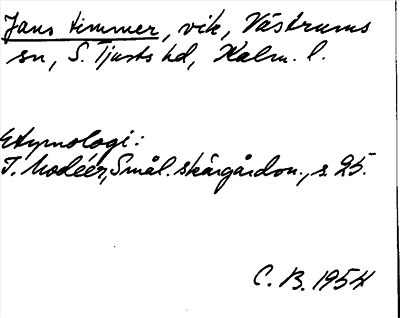 Jans timmer, vik, Västrums
sn, S. Tjusts hd, Kalm. l.
Etymologi:
I. Modéer, Smål. skärgårdsn., s. 25.
C. B. 1954